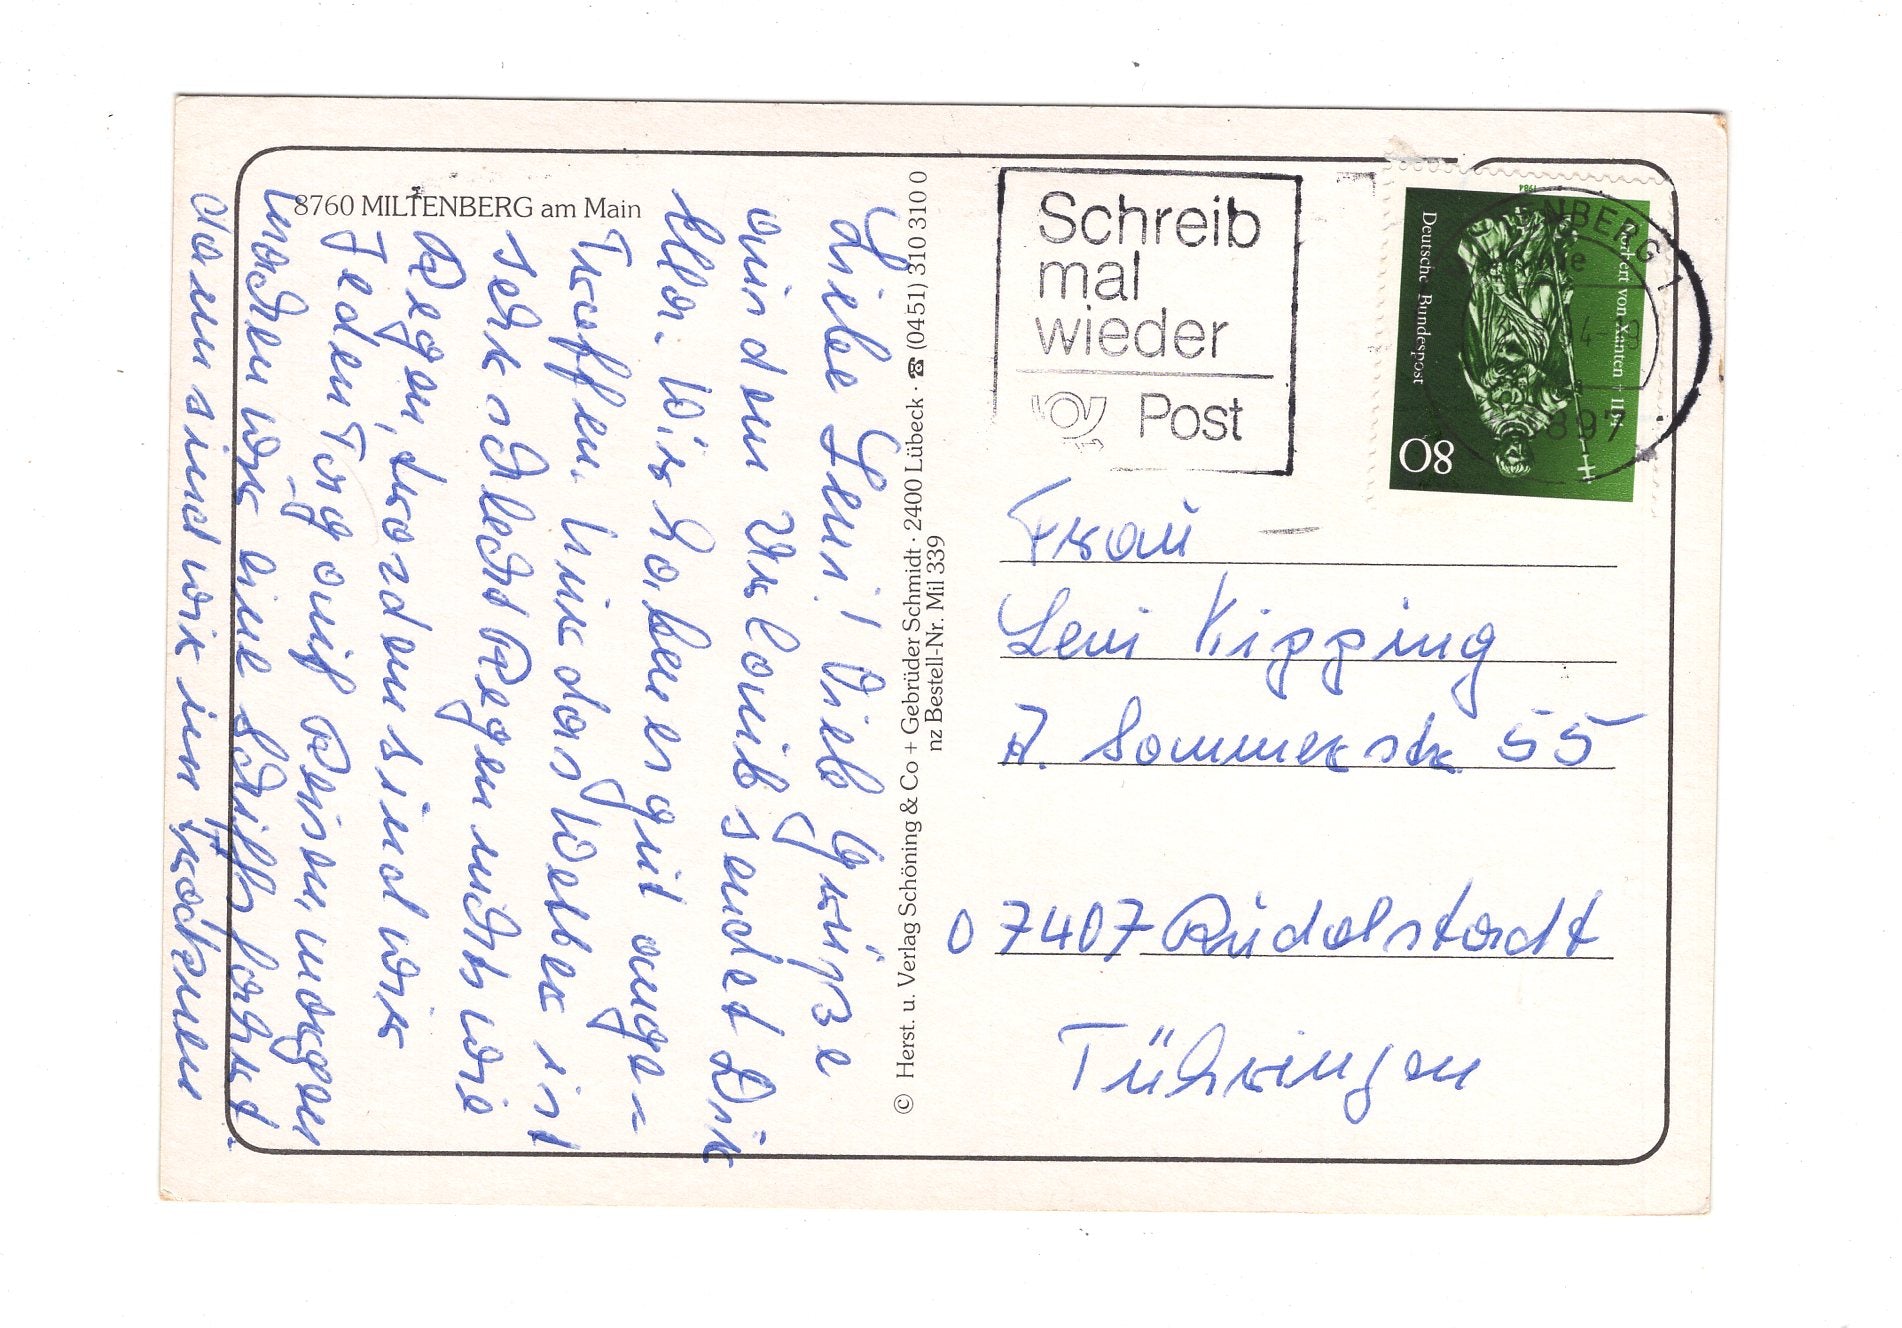 8760 MILTENBERG am Main
Liebe Leni! Viele Grüße
aus dem Urlaub sendet Dir
Wir haben es gut ange=
troffen. Nur das Wetter ist
sehr schlecht Regen nichts wie
Regen, trotzdem sind wir
Jeden Tag auf Reisen, morgen
machen wir eine Schifffahrt.
dann sind wir im Trockenen
© Herst. u. Verlag Schöning & Co + Gebrüder Schmidt · 2400 Lübeck · ☎ (0451) 310 310 0
nz Bestell-Nr. Mil 339
Schreib
mal
wieder
Post
1984
Deutsche Bundespost
von Xanten
80
Frau
Leni Kipping
A. Sommerstr 55
07407 Rudolstadt
Tühringen